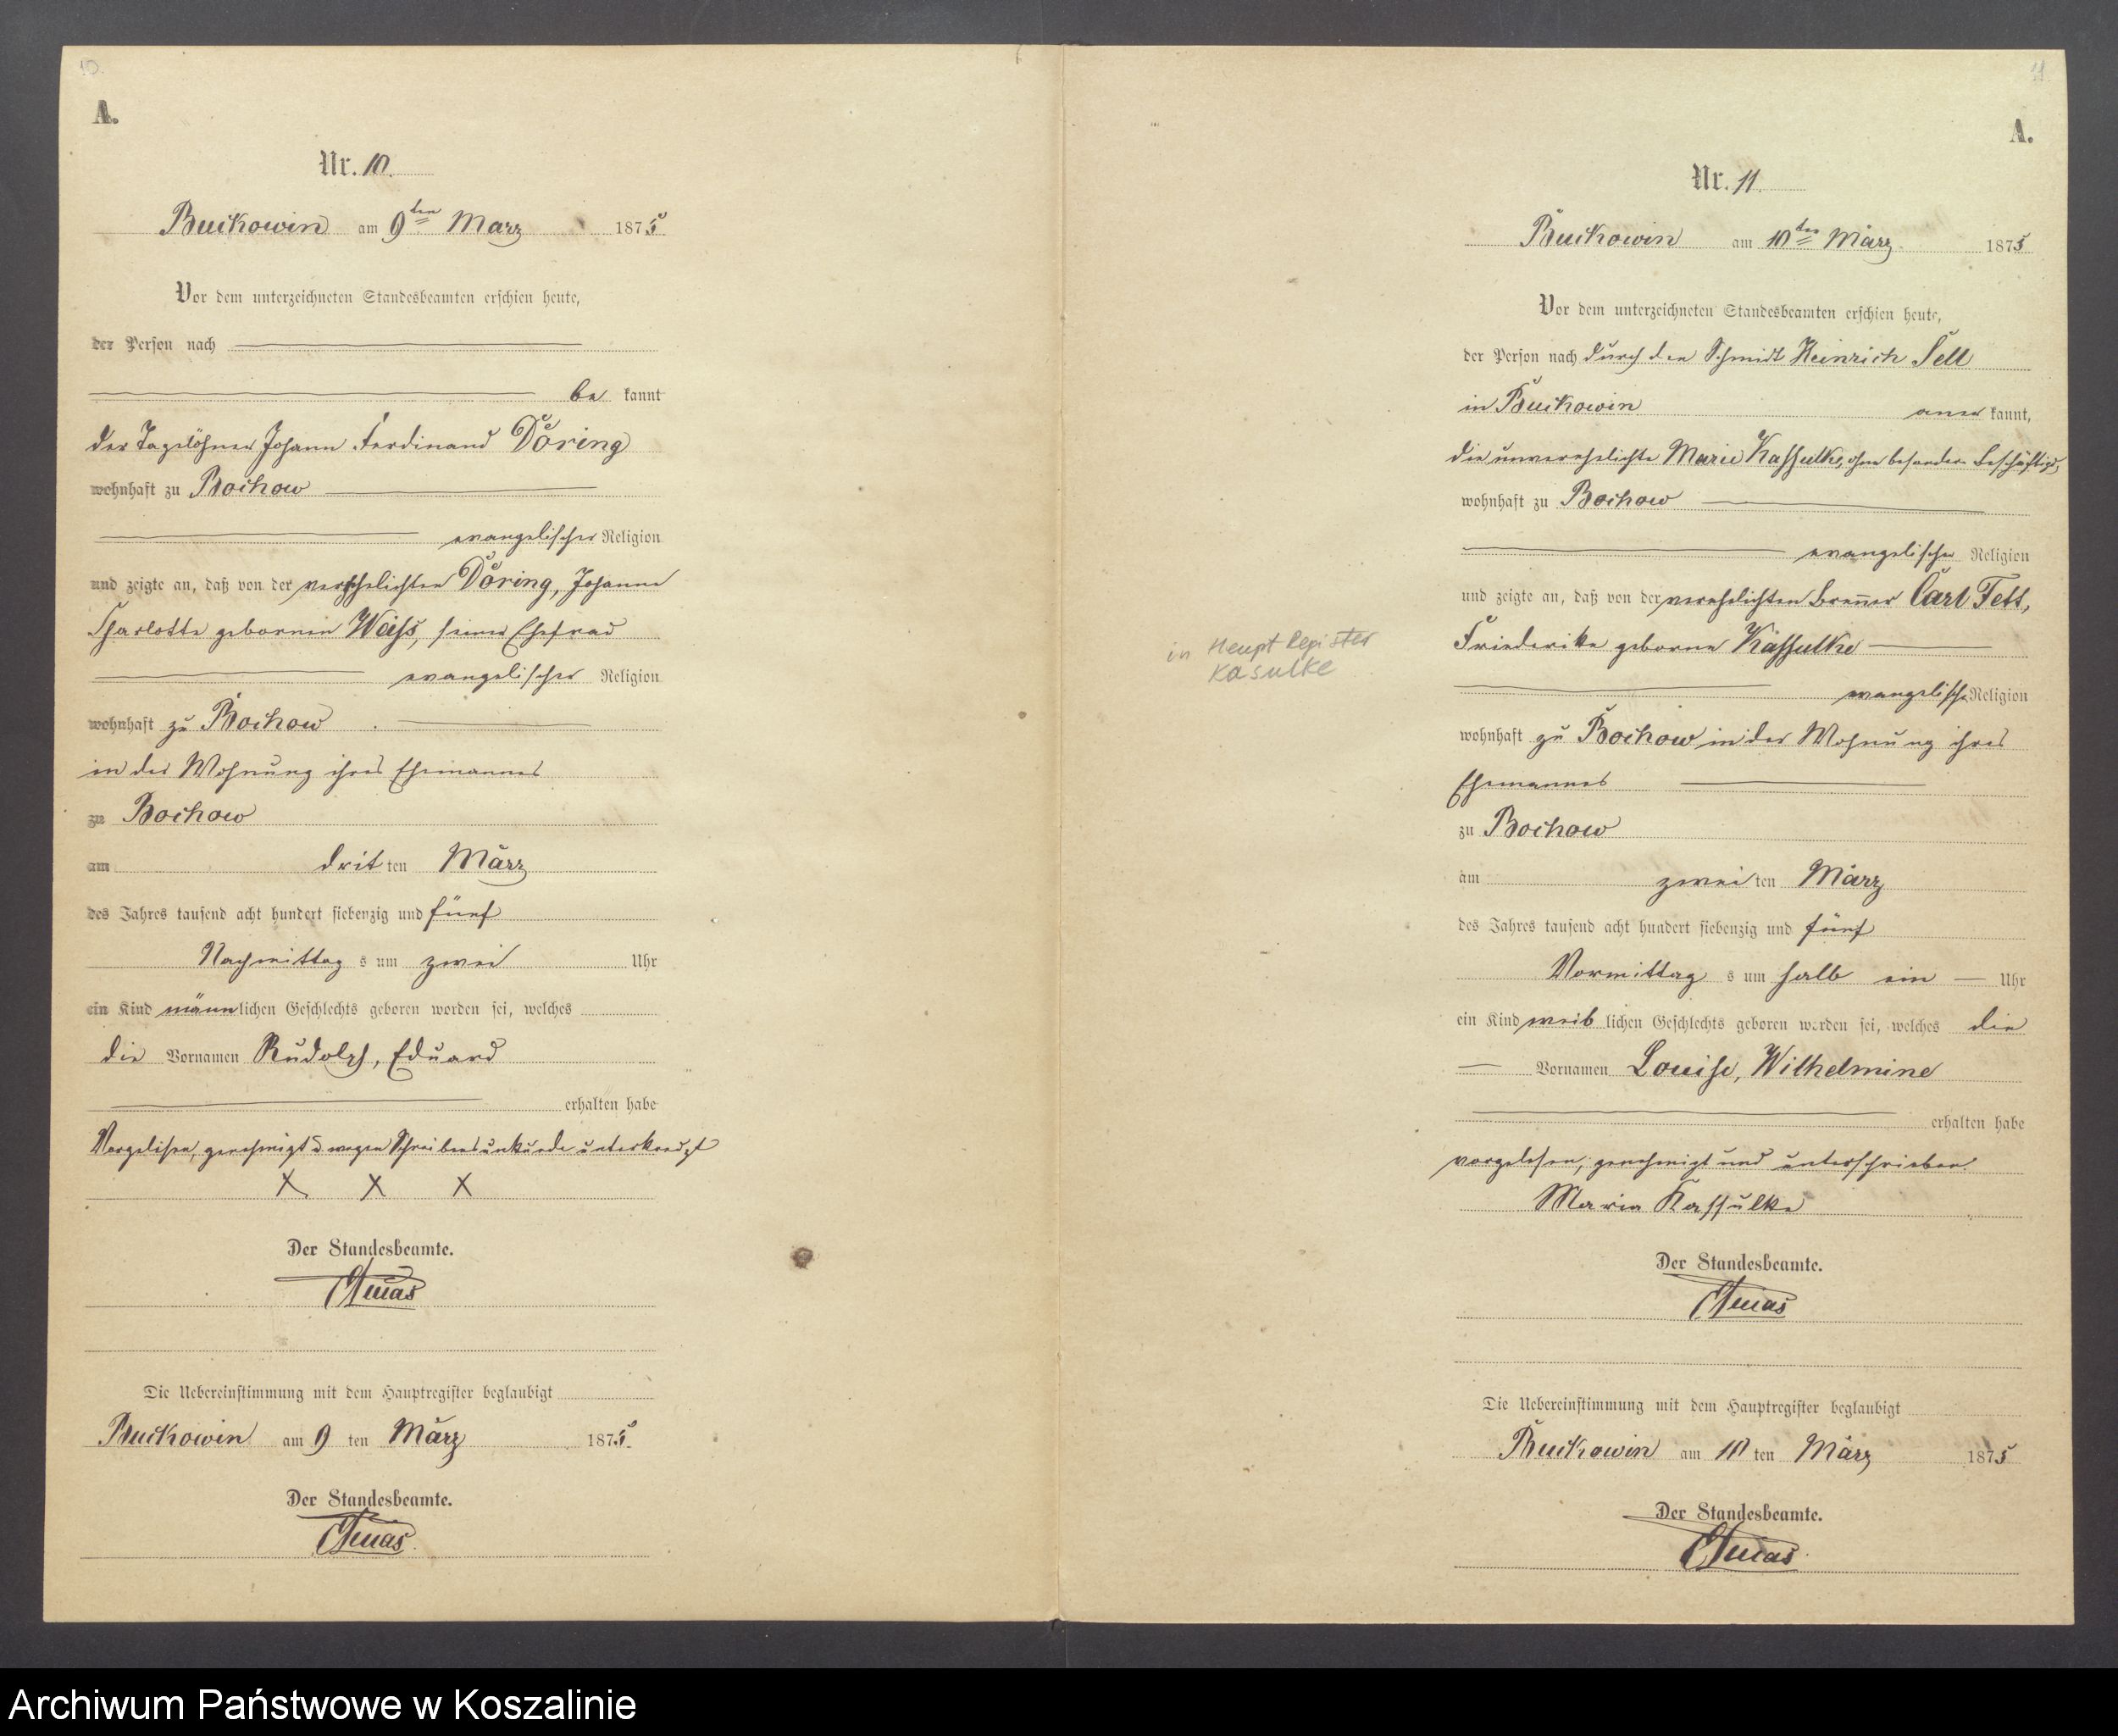 10.
A.
Nr. 10.
Buckowin am 9ten März 1875
Vor dem unterzeichneten Standesbeamten erschien heute,
der Person nach
be kannt
der Tagelöhner Johann Ferdinand Döring
wohnhaft zu Bochow
evangelischer Religion
und zeigte an, daß von der verehelichten Döring, Johanne
Charlotte geborenen Weiss, seiner Ehefrau
evangelischer Religion
wohnhaft zu Bochow
in der Wohnung ihres Ehemannes
zu Bochow
am dritten März
des Jahres tausend acht hundert siebenzig und fünf
Nachmittags um zwei Uhr
ein Kind männlichen Geschlechts geboren worden sei, welches
die Vornamen Rudolph, Eduard
erhalten habe
Vorgelesen, genehmigt u. wegen Schreibensunkunde unterkreuzt
X X X
Der Standesbeamte.
Die Uebereinstimmung mit dem Hauptregister beglaubigt
Buckowin am 9 ten März 1875.
Der Standesbeamte.
11.
A.
Nr. 11.
Buckowin am 10ten März 1875
Vor dem unterzeichneten Standesbeamten erschien heute,
der Person nach durch den Schmidt Heinrich Sell
in Buckowin aner kannt,
die unverehelichte Marie Kassulke, ohne besondere Beschäftig.,
wohnhaft zu Bochow
evangelischer Religion
und zeigte an, daß von der verehelichten Brenner Carl Fett,
Friederike geborne Kassulke
evangelische Religion
wohnhaft zu Bochow in der Wohnung ihres
Ehemannes
zu Bochow
am zweiten März
des Jahres tausend acht hundert siebenzig und fünf
Vormittags um halb ein Uhr
ein Kind weiblichen Geschlechts geboren worden sei, welches die
Vornamen Louise, Wilhelmine
erhalten habe
vorgelesen, genehmigt und unterschrieben.
Maria Kassulke
Der Standesbeamte.
Die Uebereinstimmung mit dem Hauptregister beglaubigt
Buckowin am 10 ten März 1875
Der Standesbeamte.
in Haupt Register
Kasulke
Archiwum Państwowe w Koszalinie